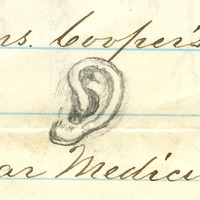 rs. Cooper's
ar Medici